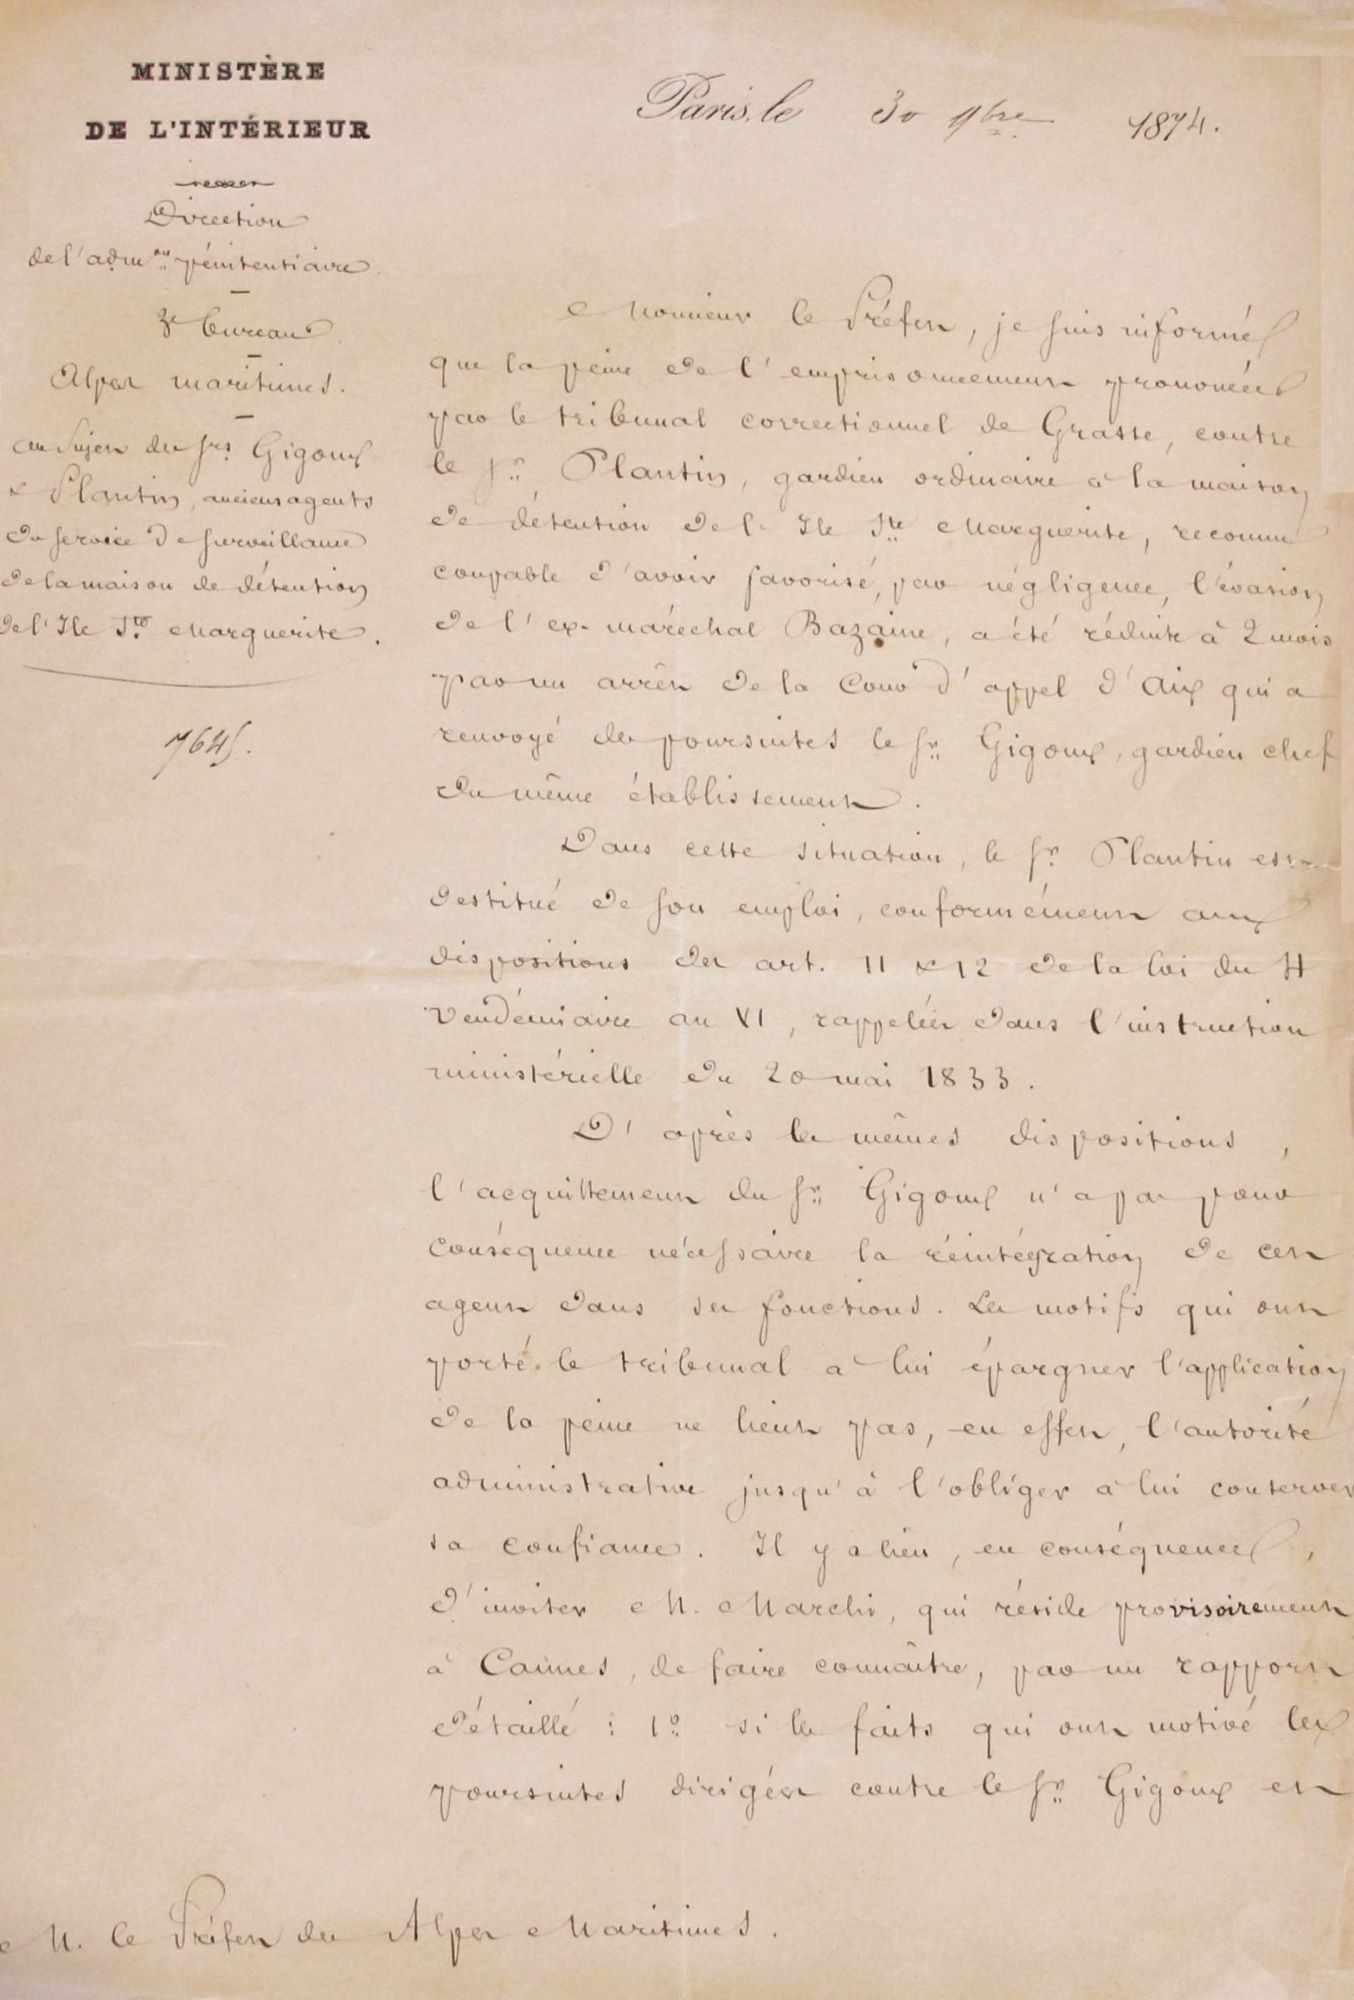 MINISTÈRE
DE L'INTÉRIEUR
Direction
de l'adm.on pénitentiaire
3e Bureau
Alpes maritimes.
au sujet des Srs Gigoux
& Plantin, anciens agents
du service de surveillance
de la maison de détention
de l'Ile Ste Marguerite.
7645.
Paris, le 30 9bre 1874.
Monsieur le Préfet, je suis informé
que la peine de l'emprisonnement prononcée
par le tribunal correctionnel de Grasse, contre
le Sr. Plantin, gardien ordinaire à la maison
de détention de l'Ile Ste Marguerite, reconnu
coupable d'avoir favorisé, par négligence, l'évasion
de l'ex-maréchal Bazaine, a été réduite à 2 mois
par un arrêt de la Cour d'appel d'Aix qui a
renvoyé des poursuites le Sr. Gigoux, gardien chef
du même établissement.
Dans cette situation, le Sr. Plantin est
destitué de son emploi, conformément aux
dispositions des art. 11 & 12 de la loi du 4
Vendémiaire an VI, rappelées dans l'instruction
ministérielle du 20 mai 1833.
D'après les mêmes dispositions,
l'acquittement du Sr. Gigoux n'a pas pour
conséquence nécessaire la réintégration de cet
agent dans ses fonctions. Les motifs qui ont
porté le tribunal a lui épargner l'application
de la peine ne lient pas, en effet, l'autorité
administrative jusqu'à l'obliger à lui conserver
sa confiance. Il y a lieu, en conséquence,
d'inviter M. Marchi, qui réside provisoirement
à Cannes, de faire connaître, par un rapport
détaillé : 1° si les faits qui ont motivé les
poursuites dirigées contre le Sr. Gigoux et
M. le Préfet des Alpes Maritimes.